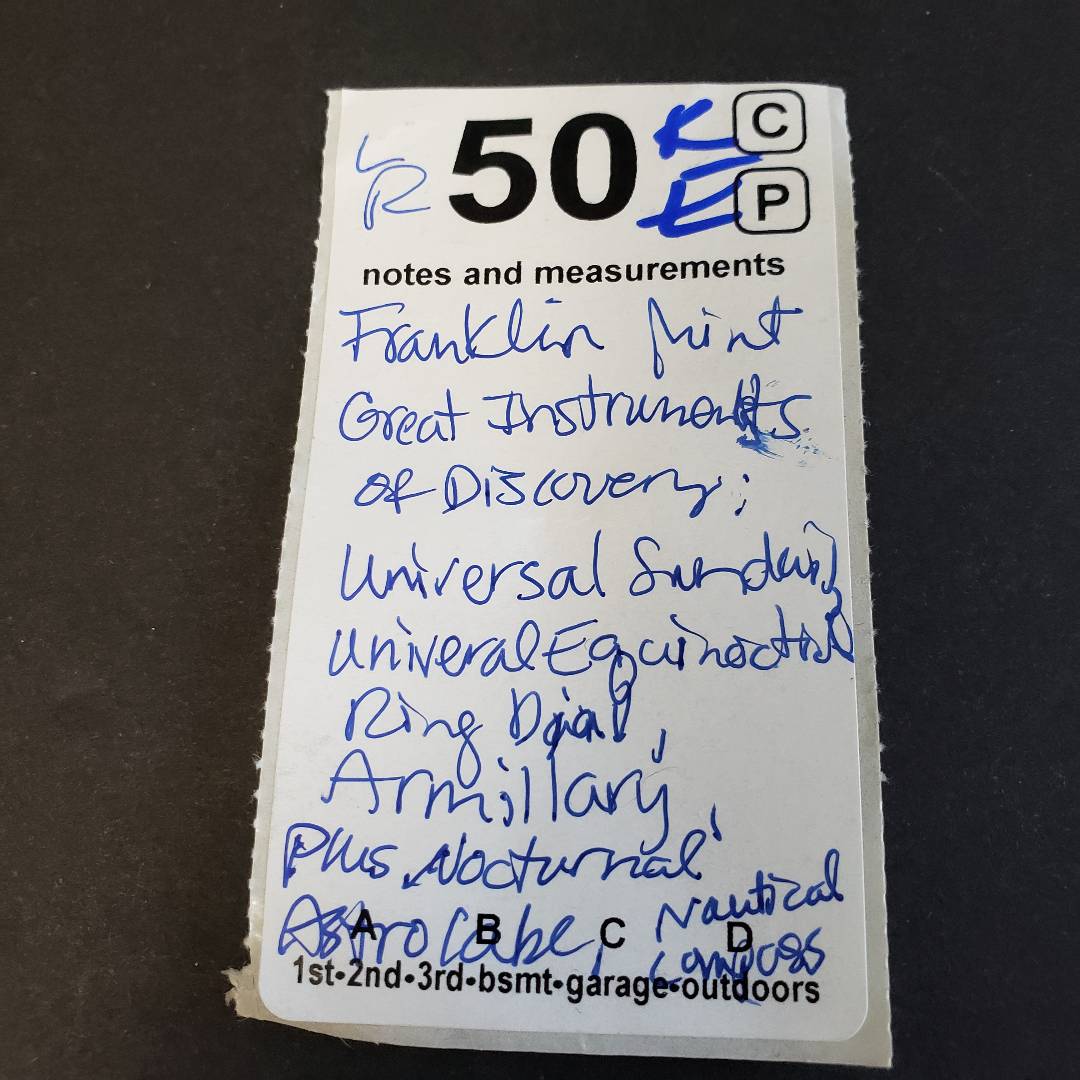 LR 50 K C
E P
notes and measurements
Franklin Mint
Great Instruments
of Discovery;
Universal Sundial,
Univeral Equinoctial
Ring Dial,
Armillary,
Plus, Nocturnal
Astrolabe, Nautical
Compass
A B C D
1st•2nd•3rd•bsmt•garage•outdoors